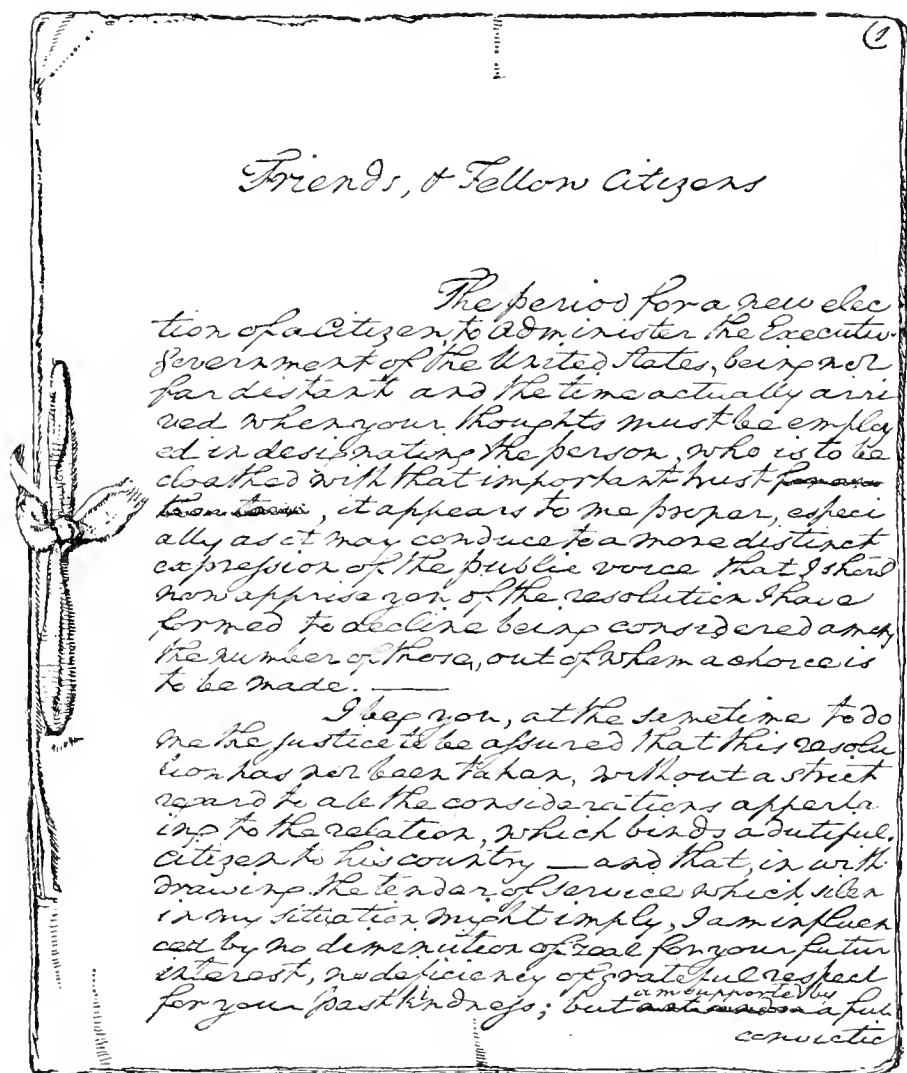 1
Friends, & Fellow Citizens
The period for a new elec
tion of a Citizen, to administer the Executiv
Government of the United States, being not
far distant and the time actually arri
ved when your thoughts must be employ
ed in designating the person, who is to be
cloathed with that important trust
, it appears to me proper, especi
ally as it may conduce to a more distinct
expression of the public voice that I should
now apprise you of the resolution I have
formed to decline being considered among
the number of those, out of whom a choice is
to be made. —
I beg you, at the sametime to do
me the justice to be assured that this resolu
tion has not been taken, without a strict
regard to all the considerations apperta
ing to the relation, which binds a dutiful
citizen to his country — and that, in with
drawing the tender of service which silen
in my situation might imply, I am influen
ced by no diminution of zeal for your futur
interest, no deficiency of grateful respect
for your past kindness; but am supported by a full
convictio